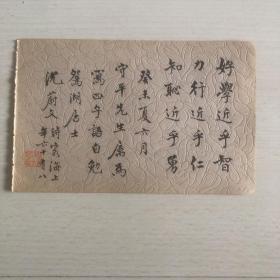 好學近乎智
力行近乎仁
知恥近乎勇
癸未夏六月
守平先生屬為
寫四字語自勉
鴛湖居士
沈蔚文時客海上
年六十有八